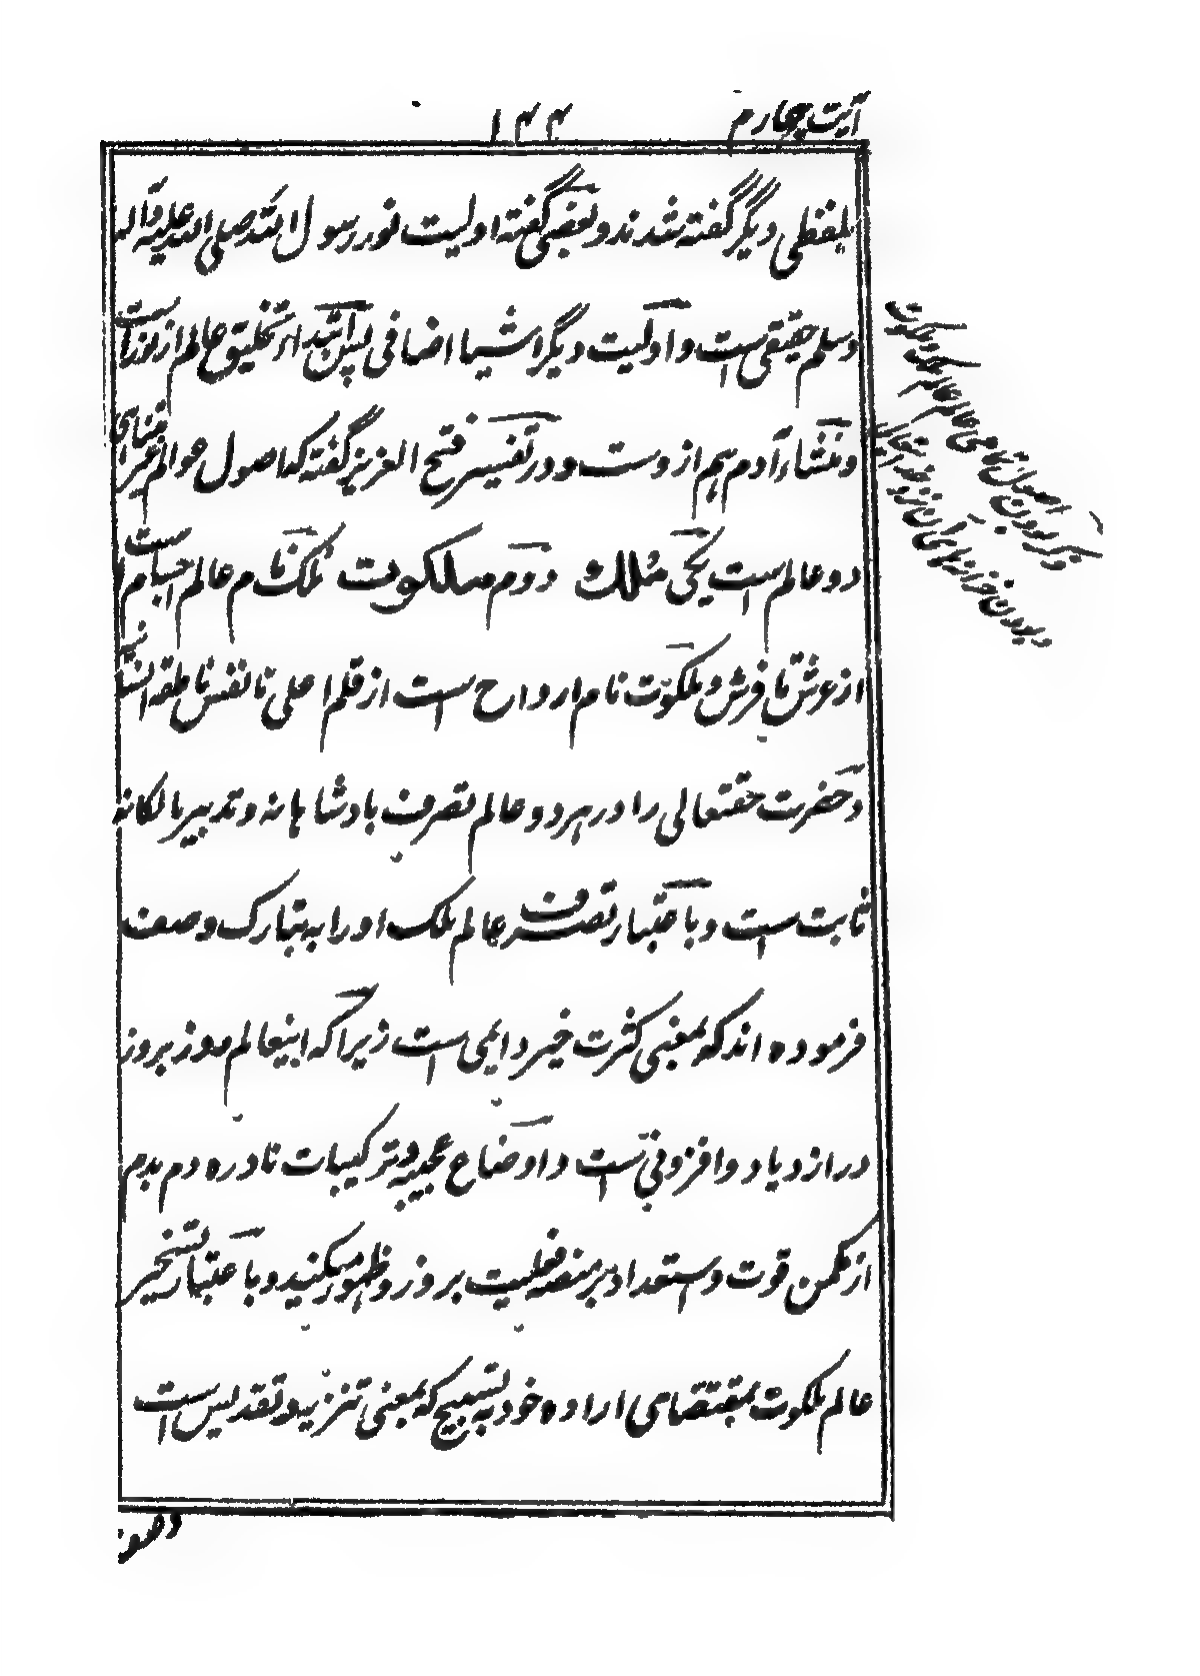 آیت چهارم
۱۴۴
بلفظی دیگر گفته شدند و بعضی گفته اولیت نور رسول الله صلی الله علیه وآله
وسلم حقیقی ست و اولیت دیگر اشیا اضافی پس ابتداء تخلیق عالم از نور اوست
و منشاء آدم هم از وست و در تفسیر فتح العزیز گفته که اصول عوالم غیر متناهی
دو عالم است یکی ملک دووم ملکوت ملک نام عالم اجسام است
از عرش تا فرش و ملکوت نام ارواح است از قلم اعلی تا نفس ناطقه انسانیه
و حضرت حقتعالی را در هر دو عالم تصرف بادشاهانه و تدبیر مالکانه
ثابت ست و باعتبار تصرف عالم ملک او را به تبارک وصف
فرموده اند که بمعنی کثرت خیر دایمی است زیرا که اینعالم روز بروز
در ازدیاد و افزونی ست و اوضاع عجیبه و ترکیبات نادره دم بدم
از مکمن قوت و ستعداد بر منصه فعلیت بروز و ظهور میکنید و باعتبار تسخیر
عالم ملکوت بمقتضای اراده خود به تسبیح که بمعنی تنزیه و تقدیس است
ذکر بودن اصول تمامی عالم عالم ملک و ملکوت
و بودن خزانهای آن نزد خدا تعالی